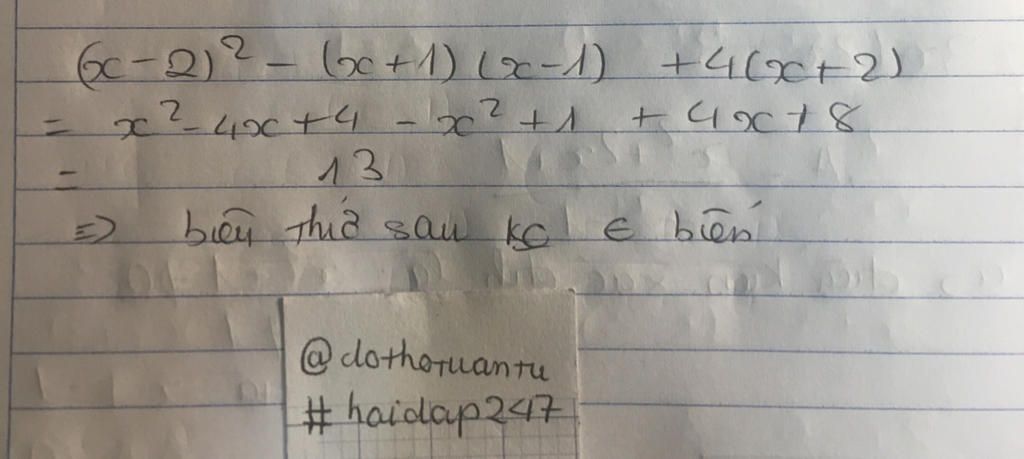 (x-2)² - (x+1)(x-1) +4(x+2)
= x²-4x+4 - x²+1 + 4x+8
= 13
=> biểu thử sau ∈ biến
@dothotuantu
# haidap247